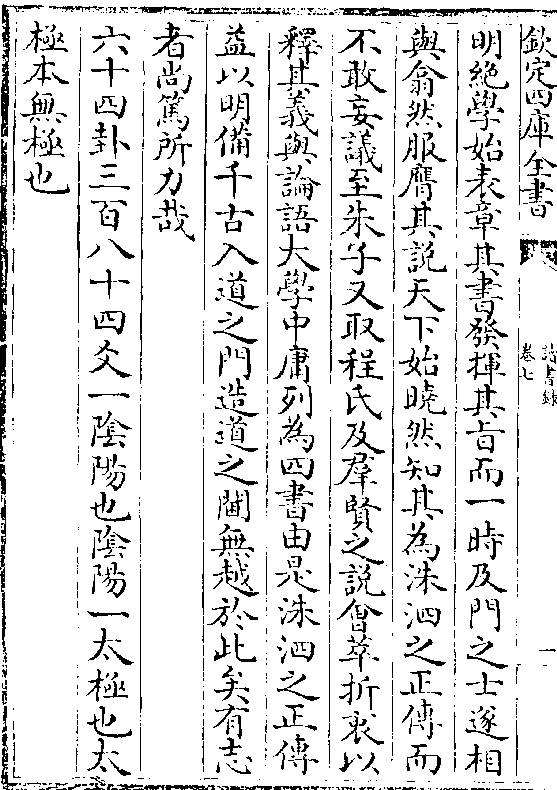 欽定四庫全書
讀書錄
卷七
一
明絶學始表章其書發揮其㫖而一時及門之士遂相
與翕然服膺其説天下始曉然知其為洙泗之正傳而
不敢妄議至朱子又取程氏及羣賢之説㑹萃折衷以
釋其義與論語大學中庸列為四書由是洙泗之正傳
益以明備千古入道之門造道之閫無越於此矣有志
者尚篤所力哉
六十四卦三百八十四爻一陰陽也陰陽一太極也太
極本無極也